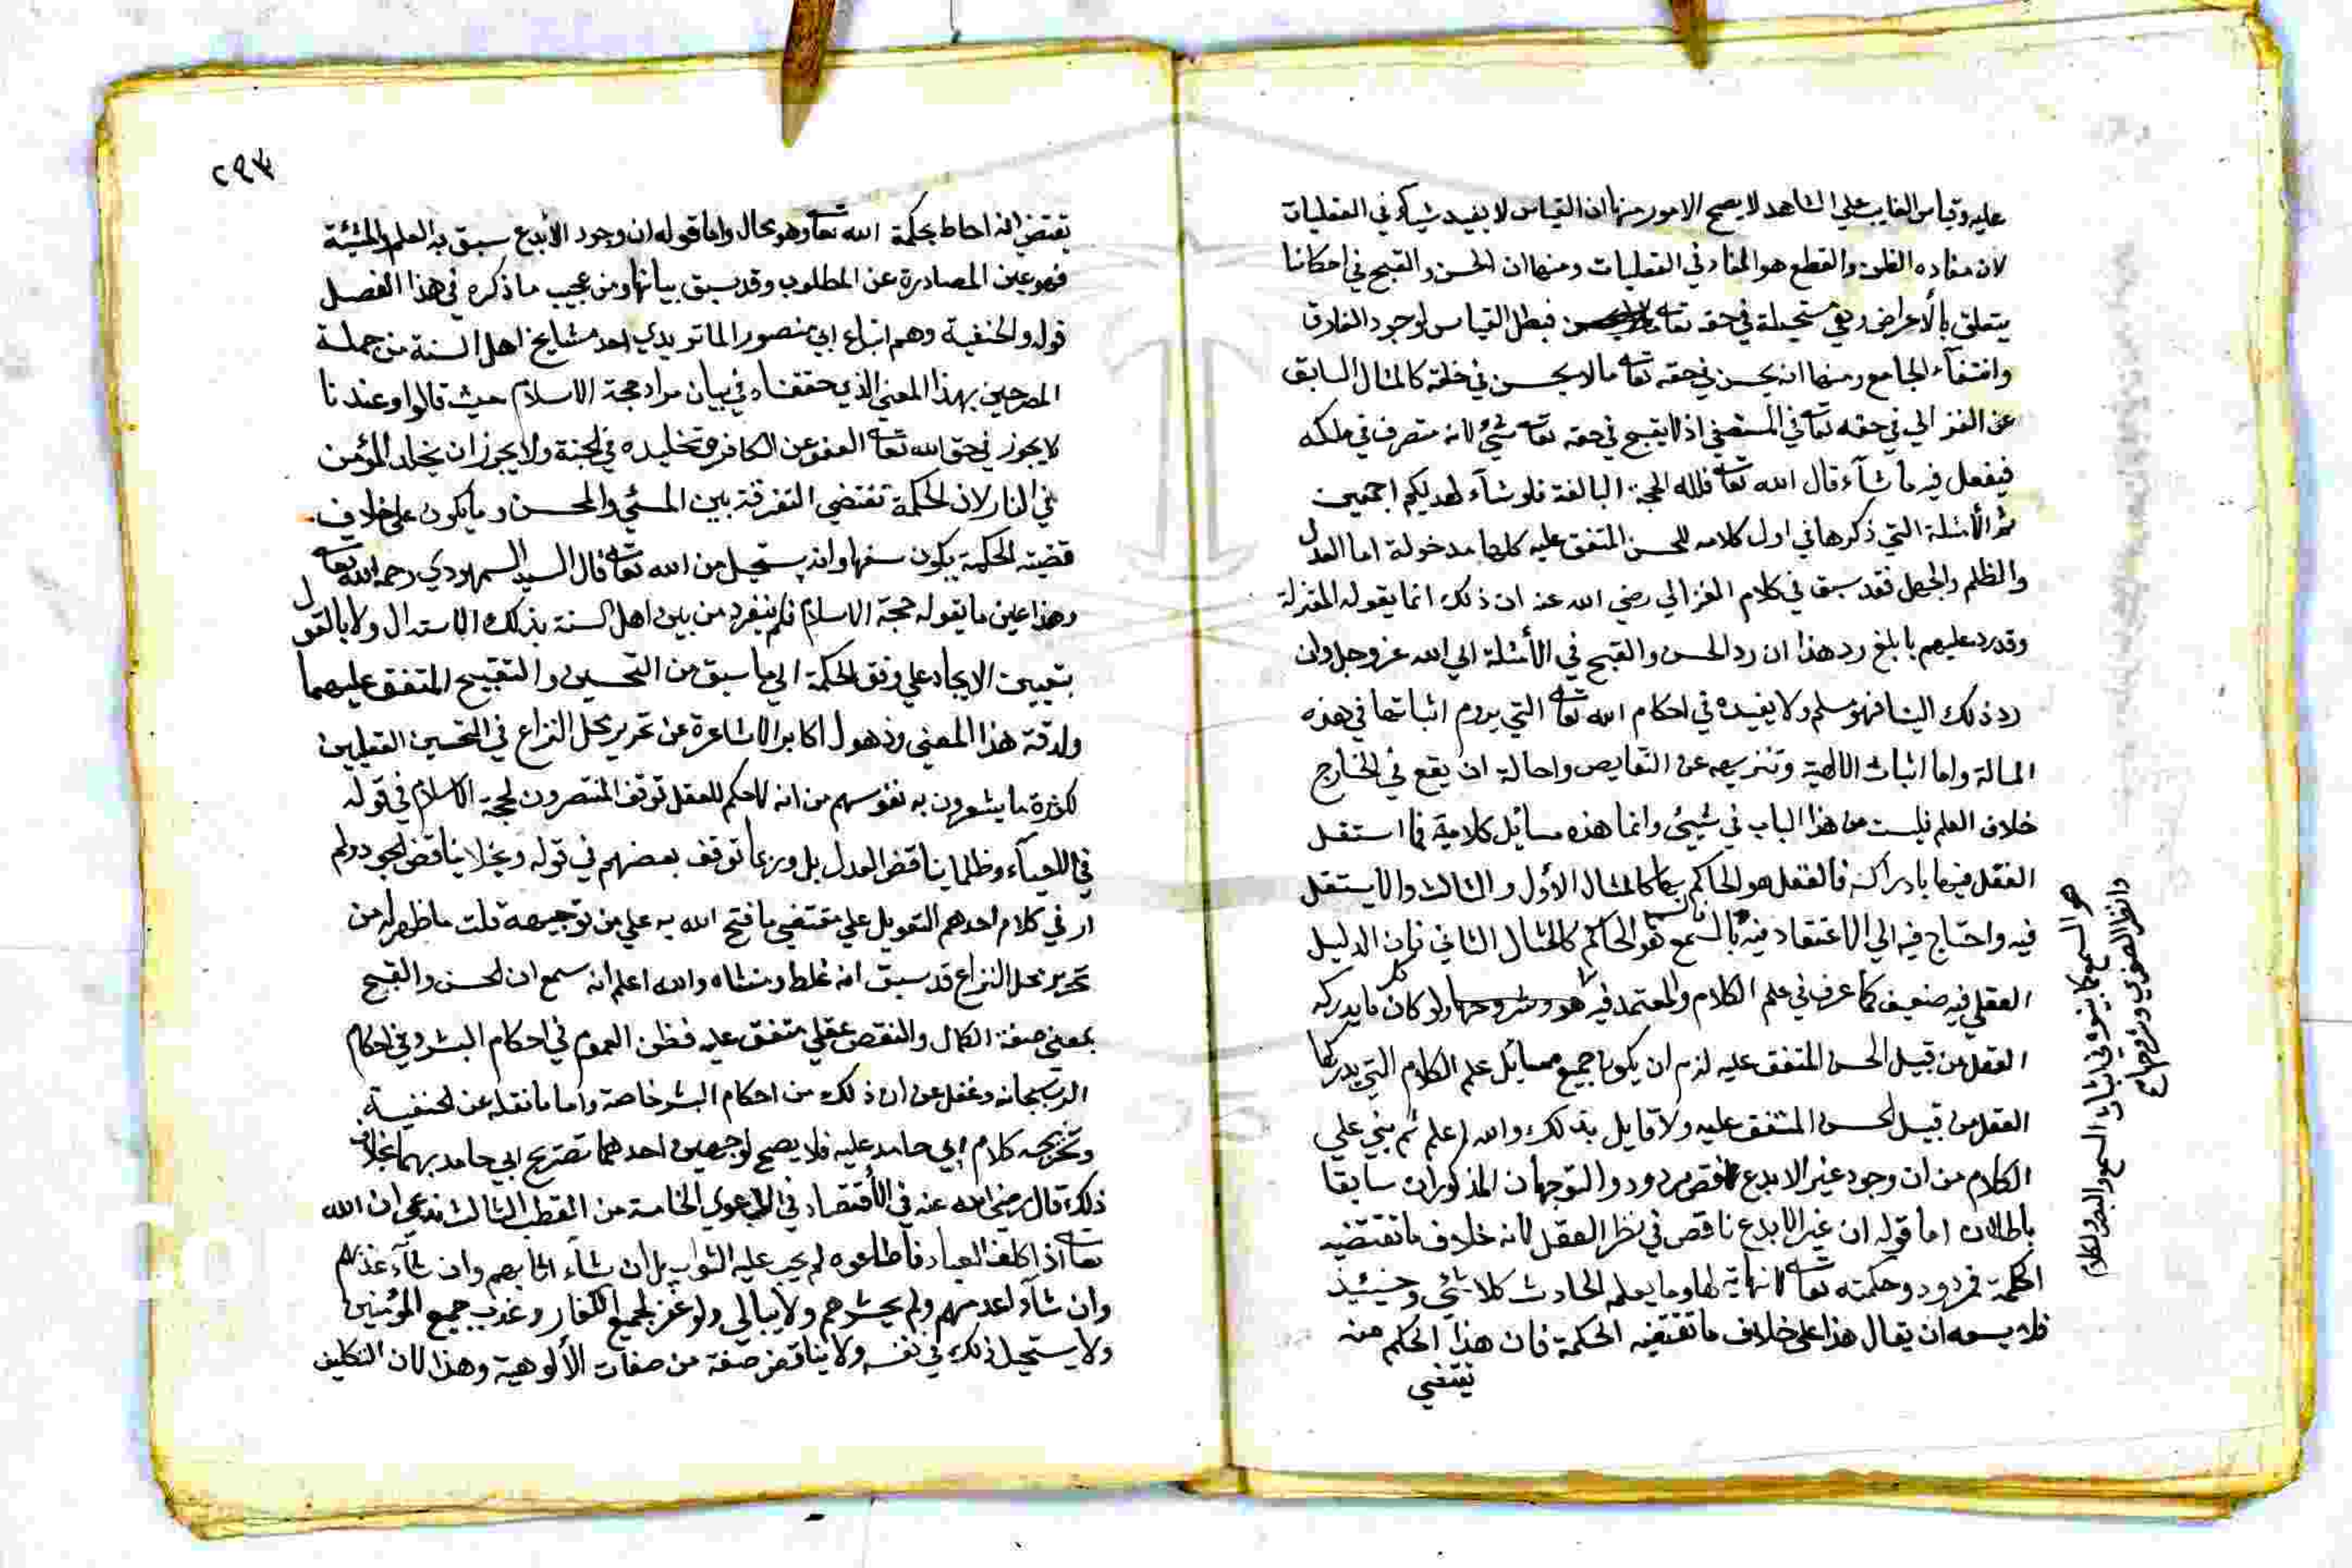 عليه وقياس الغايب علي الشاهد لا يصح لامور منها ان القياس لا يفيد شيأ في العقليات
لان مفاده الظن والقطع هو المفاد في العقليات ومنها ان الحسن والقبح في احكامنا
يتعلق بالأعراض وهي مستحيلة في حقه تعالى فبطل القياس لوجود الفارق
وانتفاء الجامع ومنها انه يحسن في حقه تعالى ما لا يحسن في خلقه كالمثال السابق
عن الغزالي في حقه تعالى في المستصفي اذ لا يقبح في حقه تعالى شيء لانه متصرف في ملكه
فيفعل فيه ما شآء قال الله تعالى فلله الحجة البالغة فلو شآء لهديكم اجمعين
ثم الأمثلة التي ذكرها في اول كلامه للحسن المتفق عليه كلها مدخولة اما العدل
والظلم والجهل فقد سبق في كلام الغزالي رضي الله عنه ان ذلك انما يقوله المعتزلة
وقد رد عليهم بابلغ رد هذا ان رد الحسن والقبح في الأمثلة الي الله عز وجل وان
رد ذلك الينا فهو مسلم ولا يفيده في احكام الله تعالى التي يروم اثباتها في هذه
المسالة واما اثبات الالهية وتنزيهه عن النقايص واحالة ان يقع في الخارج
خلاف العلم فليست من هذا الباب في شيئ وانما هذه مسايل كلامية فما استقل
العقل فيها بادراكه فالعقل هو الحاكم بها كالمثال الأول والثالث والا يستقل
فيه واحتاج فيه الي الاعتقاد فيه بالسمع هو الحاكم كالمثال الثاني فان الدليل
العقلي فيه ضعيف كما عرف في علم الكلام والمعتمد فيه هو ولو كان كل ما يدركه
العقل من قبيل الحسن المتفق عليه لزم ان يكون جميع مسايل علم الكلام التي يدركها
العقل من قبيل الحسن المتفق عليه ولا قايل بذلك والله اعلم ثم بني علي
الكلام من ان وجود غير الابدع نقص مردود والتوجيهان المذكوران سابقا
باطلان اما قوله ان غير الابدع ناقص في نظر العقل لانه خلاف ما تقتضيه
الحكمة فمردود وحكمته تعالى لا نهاية لها وما يعلمه الحادث كلا شئي وحينئذ
فلا يسعه ان يقال هذا على خلاف ما تقتضيه الحكمة فان هذا الحكم منه
يقتضي
هو السمع كما بينوه في اثبات السمع والبصر والكلام
وانظر الصغري وشروحها صح
٢٩٣
يقتضي انه احاط بحكمة الله تعالى وهو محال واما قوله ان وجود الأبدع سبق به العلم والمشيئة
فهو عين المصادرة عن المطلوب وقد سبق بيانها ومن عجيب ما ذكره في هذا الفصل
قوله والحنفية وهم اتباع ابي منصور الماتريدي احد مشايخ اهل السنة من جملة
المصرحين بهذا المعني الذي حققناه في بيان مراد حجة الاسلام حيث قالوا وعندنا
لا يجوز في حق الله تعالى العفو عن الكافر وتخليده في الجنة ولا يجوز ان يخلد المؤمن
في النار لان الحكمة تقتضي التفرقة بين المسئي والمحسن وما يكون على خلاف
قضية الحكمة يكون سفها وانه يستحيل من الله تعالى قال السيد السمهودي رحمه الله تعالى
وهذا عين ما يقوله حجة الاسلام فلم ينفرد من بين اهل السنة بذلك الاستدلال ولا بالقول
بتعيين الايجاد علي وفق الحكمة الي ما سبق من التحسين والتقبيح المتفق عليهما
ولدقة هذا المعني وذهول اكابر الاشاعرة عن تحرير محل النزاع في التحسين العقليين
لكثرة ما يشعرون به نفوسهم من انه لا حكم للعقل توقف المنتصرون لحجة الاسلام في قوله
في الاحياء وظلما يناقض العدل بل وربما توقف بعضهم في قوله وبخلا يناقض الجود ولم
ار في كلام احدهم التعويل علي مقتضي ما فتح الله به علي من توجيهه قلت ما ظهر له من
تحرير محل النزاع قد سبق انه غلط ومنشاه والله اعلم انه سمع ان الحسن والقبح
بمعني صفة الكمال والنقص عقلي متفق عليه فظن العموم في احكام البشر وفي احكام
الرب سبحانه وغفل عن ان ذلك من احكام البشر خاصة واما ما نقله عن الحنفية
وتخريجه كلام ابي حامد عليه فلا يصح لوجهين احدهما تصريح ابي حامد بهما بخلاف
ذلك قال رضي الله عنه في الأقتصاد في الدعوي الخامسة من القطب الثالث ندعي ان الله
تعالى اذا كلف العباد فأطاعوه لم يجب عليه الثواب بل ان شاء اثابهم وان شآء عذبهم
وان شآء اعدمهم ولم يحشرهم ولا يبالي ولو غفر لجميع الكفار وعذب جميع المؤمنين
ولا يستحيل ذلك في نفسه ولا يناقض صفة من صفات الألوهية وهذا لان التكليف